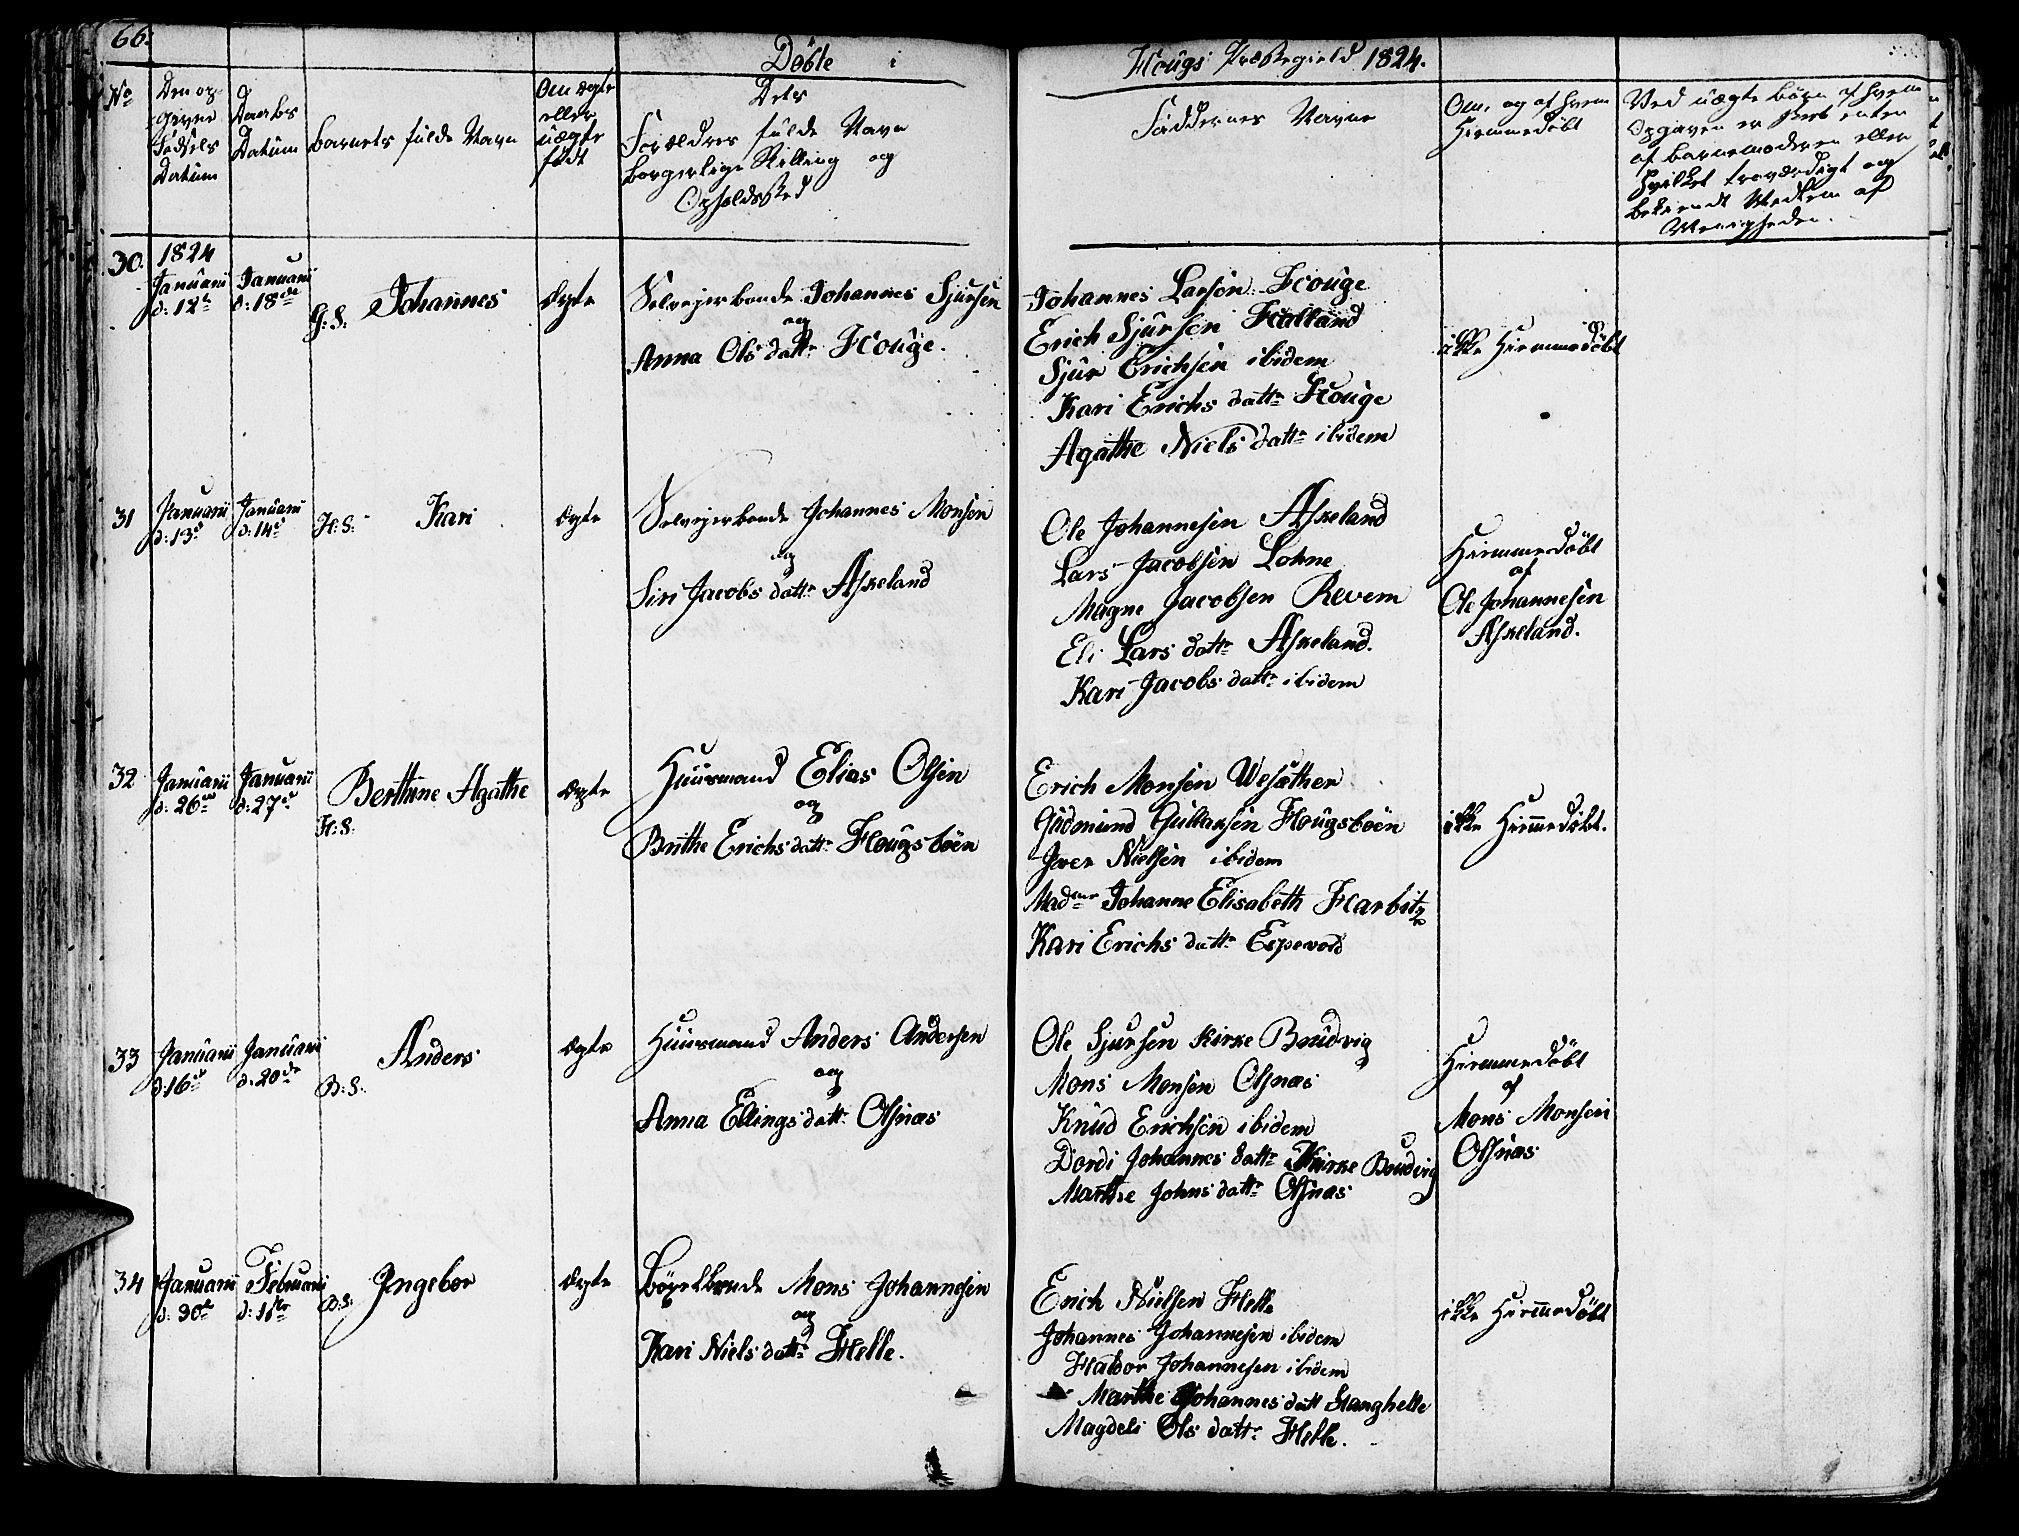 66.
Døbte i
Hougs Præstegield 1824.
No
Den op-
givne
Fødsels
Datum
Daabs
Datum
Barnets fulde Navn
Om ægte
eller
uægte
født
Dets
Forældres fulde Navn
borgerlige Stilling og
Opholdssted
Faddernes Navne
Om, og af hvem
Hiemmedøbt
Ved uægte børn af hvem
Opgaven er skeet enten
af barnemoderen eller
hvilket troværdigt og
bekiendt Medlem af
Menigheden.
30. 1824
Januarii
d: 12te
Januarii
d: 18de
H: S: Johannes
Ægte
Selvejerbonde Johannes Sjursen
og
Anna Ols dattr Houge.
Johannes Larsen Houge
Erich Sjursen Halland
Sjur Erichsen ibidem
Kari Erichs dattr Houge
Agathe Niels dattr ibidem
ikke Hiemmedøbt
31 Januarii
d: 13de
Januarii
d: 14de
H: S: Kari
Ægte
Selvejerbonde Johannes Monsen
og
Siri Jacobs dattr Askeland
Ole Johannesen Askeland
Lars Jacobsen Lohne
Magne Jacobsen Revem
Eli Lars dattr Askeland.
Kari Jacobs dattr ibidem
Hiemmedøbt
af
Ole Johannesen
Askeland.
32 Januarii
d: 26de
Januarii
d: 27de
H: S:
Berthine Agathe
Ægte
Huusmand Elias Olsen
og
Brithe Erichs dattr Hougsbøen
Erich Monsen Wesæther
Gudmund Gullaksen Hougsbøen
Iver Nielsen ibidem
Madme Johanne Elisabeth Harbitz
Kari Erichs dattr Espevold
ikke Hiemedøbt.
33 Januarii
d: 16de
Januarii
d: 20de
B: S:
Anders
Ægte
Huusmand Anders Andersen
og
Anna Ellings datt: Olsnæs
Ole Sjursen Kirke Brudvig
Mons Monsen Olsnæs
Knud Erichsen ibidem
Dordi Johannes dattr Kirke Brudvig
Marthe Johns dattr Olsnæs
Hiemmedøbt
af
Mons Monsen
Olsnæs
34 Januarii
d: 30te
Februarii
d: 1ste
B: S:
Ingebor
Ægte
Bøxelbonde Mons Johannesen
og
Kari Niels dattr Helle.
Erich Nielsen Helle
Johannes Johannesen ibidem
Haldor Johannesen ibidem
Marthe Johannes datt Stanghelle
Magdeli Ols dattr Helle.
ikke Hiemmedøbt